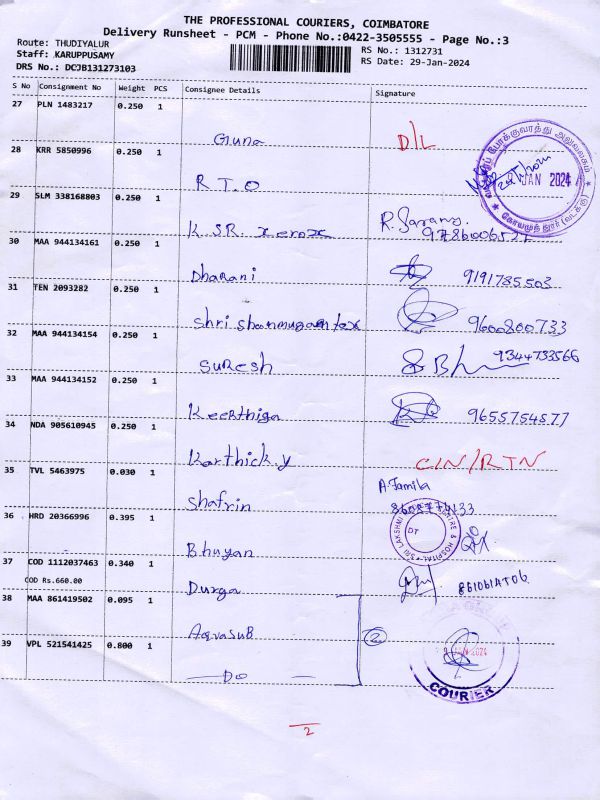 THE PROFESSIONAL COURIERS, COIMBATORE
Delivery Runsheet - PCM - Phone No.:0422-3505555 - Page No.:3
Route: THUDIYALUR
Staff: KARUPPUSAMY
DRS No.: DCJB131273103
RS No.: 1312731
RS Date: 29-Jan-2024
S No Consignment No Weight PCS Consignee Details Signature
27 PLN 1483217 0.250 1
Guna D/L
28 KRR 5850996 0.250 1
R.T.O
போக்குவரத்து அலுவலகம்
JAN 2024
29 SLM 338168803 0.250 1
K.SR. xerox R.
30 MAA 944134161 0.250 1
Dharani 9191785503
31 TEN 2093282 0.250 1
Shri Shanmugam tex 9600800733
32 MAA 944134154 0.250 1
Suresh 9344733566
33 MAA 944134152 0.250 1
Keerthiga 9655754577
34 NDA 905610945 0.250 1
Karthick.y CIN/RTN
35 TVL 5463975 0.030 1
Shafrin A.Jamila
36 HRD 20366996 0.395 1
SRI LAKSHMI & HOSPITAL
DT
37 COD 1112037463 0.340 1
COD Rs.660.00
Durga
38 MAA 861419502 0.095 1
AgvaSUB 2
39 VPL 521541425 0.800 1
JAN 2024
Do
COURIER
2